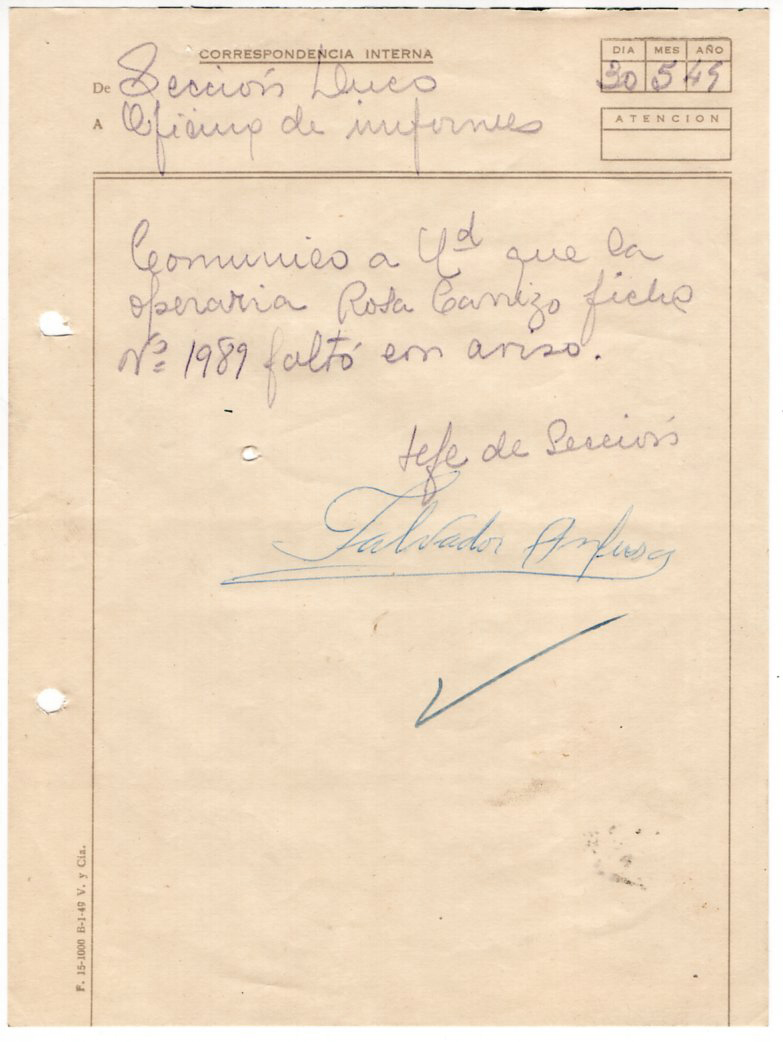 CORRESPONDENCIA INTERNA
DIA MES AÑO
De Sección Duco
30 5 49
A Oficina de informes
ATENCION
Comunico a Ud que la
operaria Rosa Carrizo ficha
Nº 1989 faltó con aviso.
Jefe de Sección
Salvador
F. 15-1000 B-1-49 V. y Cía.